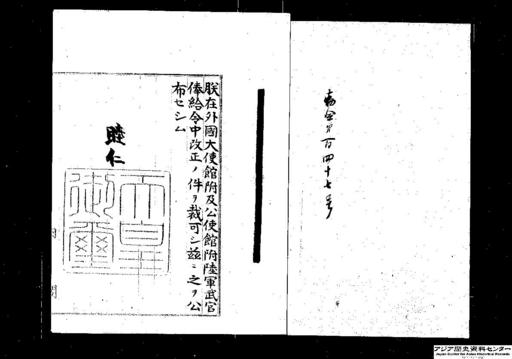 勅令第百四十七号
朕在外國大使館附及公使館附陸軍武官
俸給令中改正ノ件ヲ裁可シ茲ニ之ヲ公
布セシム
睦仁
天皇御璽
アジア歴史資料センター
Japan Center for Asian Historical Records